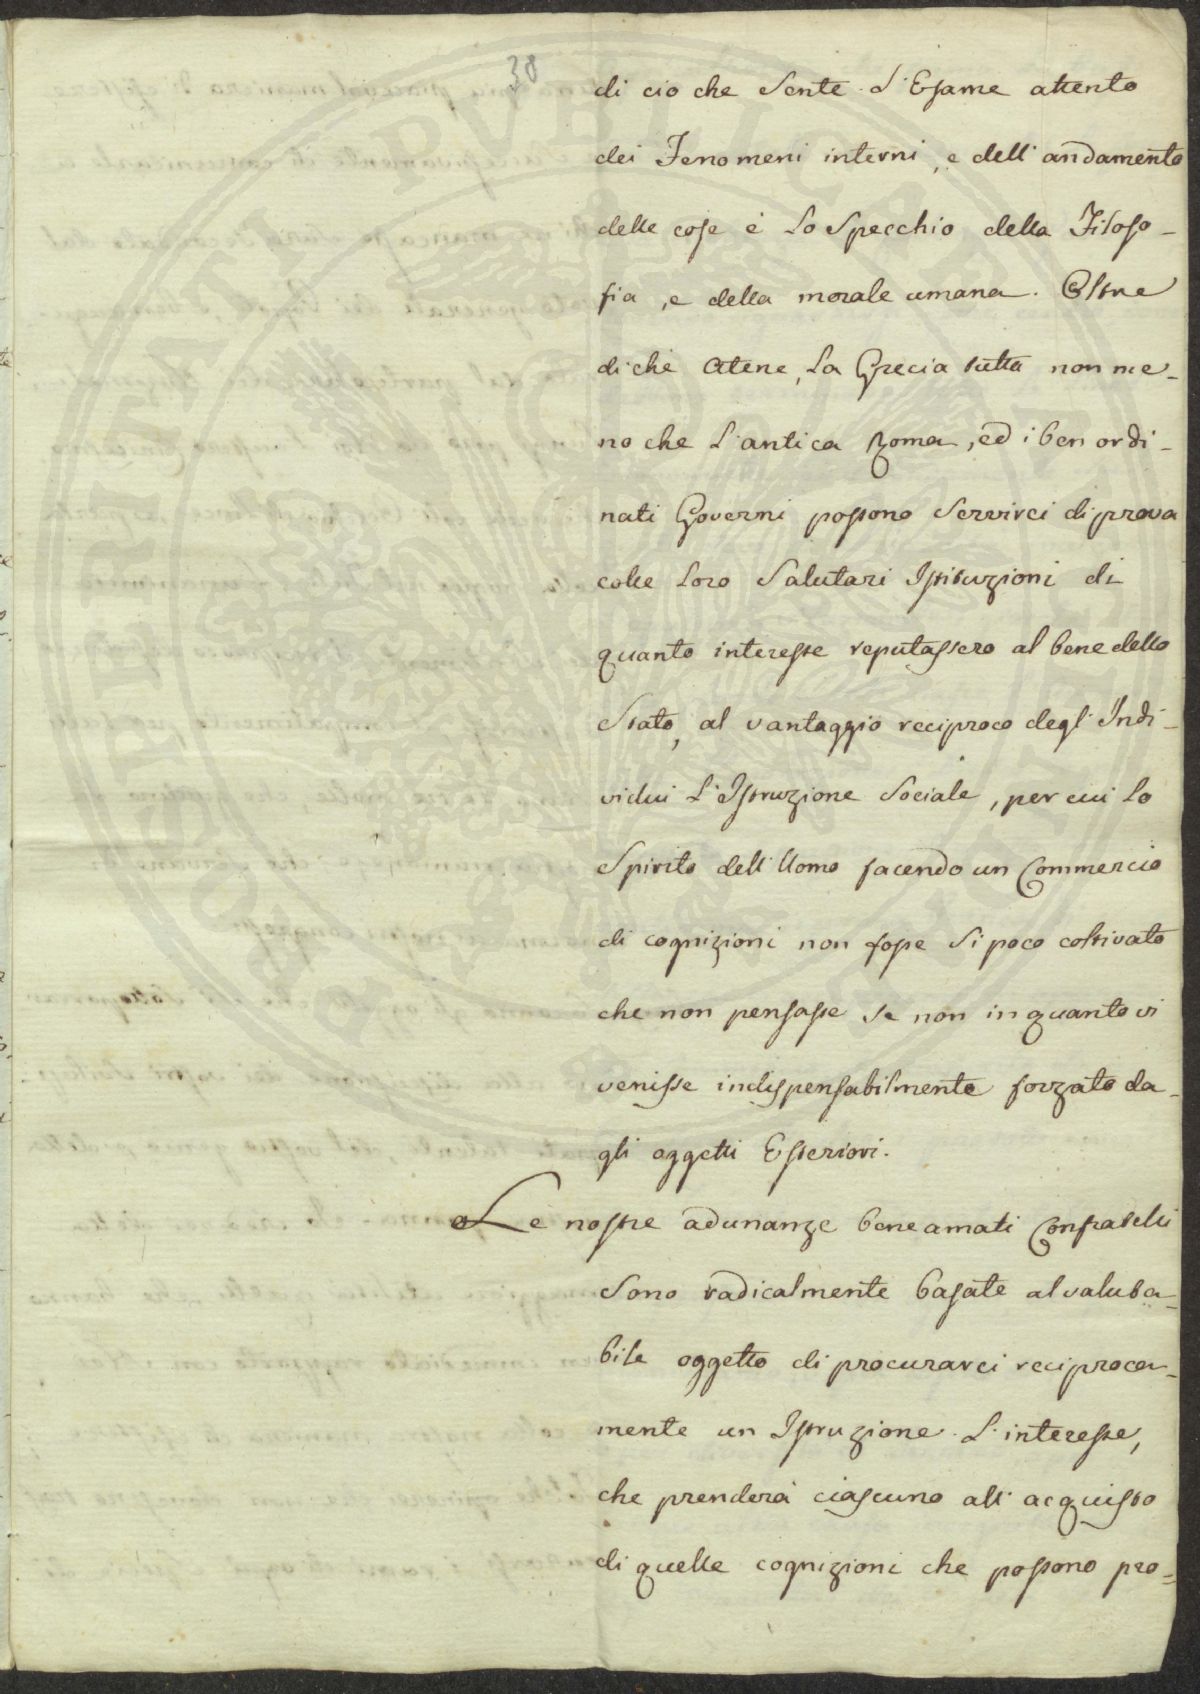 38
di cio che Sente. L'Esame attento
dei Fenomeni interni, e dell'andamento
delle cose è Lo Specchio della Filoso-
fia, e della morale umana. Oltre
di che Atene, La Grecia tutta non me-
no che L'antica Roma, ed i ben ordi-
nati Governi possono Servirci di prova
colle Loro Salutari Istituzioni di
quanto interesse reputassero al bene dello
Stato, al vantaggio reciproco degl'Indi-
vidui L'Istruzione Sociale, per cui Lo
Spirito dell'Uomo facendo un Commercio
di cognizioni non fosse Si poco coltivato
che non pensasse se non in quanto vi
venisse indispensabilmente forzato da-
gli oggetti Esteriori.
Le nostre adunanze bene amati Confratelli
Sono radicalmente basate al valuta-
bile oggetto di procurarci reciproca-
mente un Istruzione. L'interesse,
che prenderà ciascuno all'acquisto
di quelle cognizioni che possono pro-